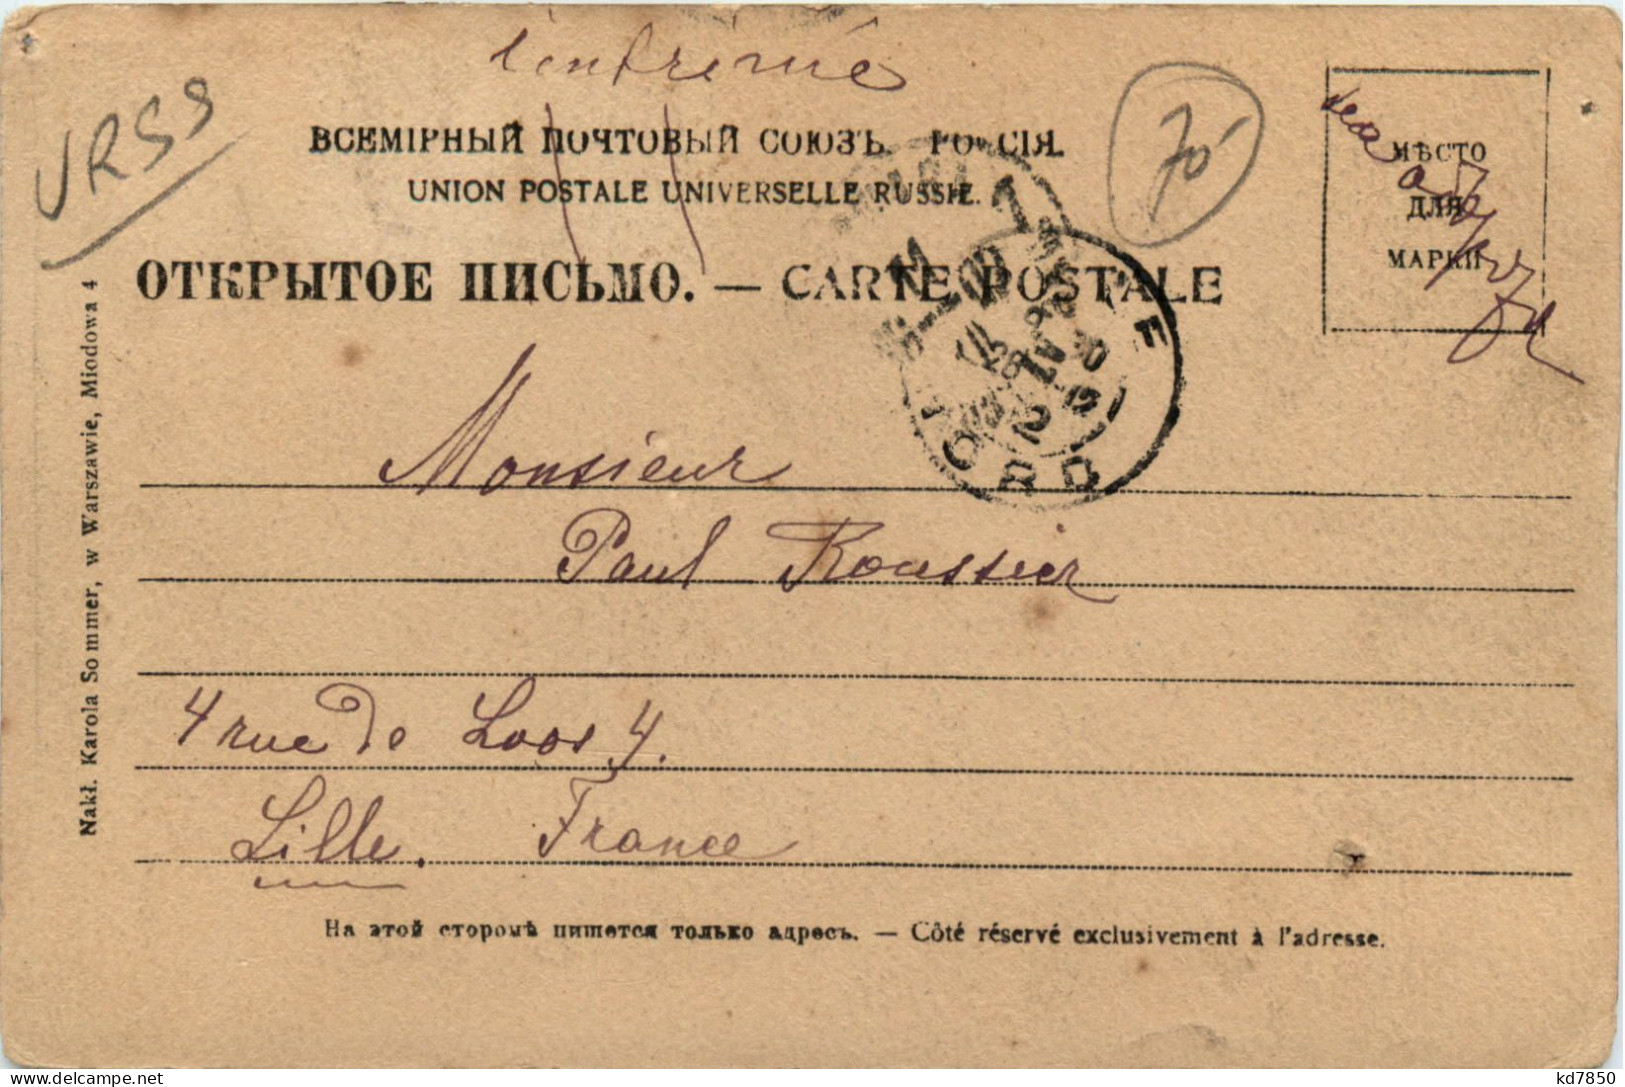 URSS
70
ВСЕМІРНЫЙ ПОЧТОВЫЙ СОЮЗЪ. РОССІЯ.
UNION POSTALE UNIVERSELLE RUSSIE.
ОТКРЫТОЕ ПИСЬМО. — CARTE POSTALE
МѢСТО
ДЛЯ
МАРКИ
LILLE
NORD
Monsieur
Paul Roussier
4 rue de Loos 4.
Lille. France
На этой сторонѣ пишется только адресъ. — Côté réservé exclusivement à l'adresse.
Nakł. Karola Sommer, w Warszawie, Miodowa 4
kd7850